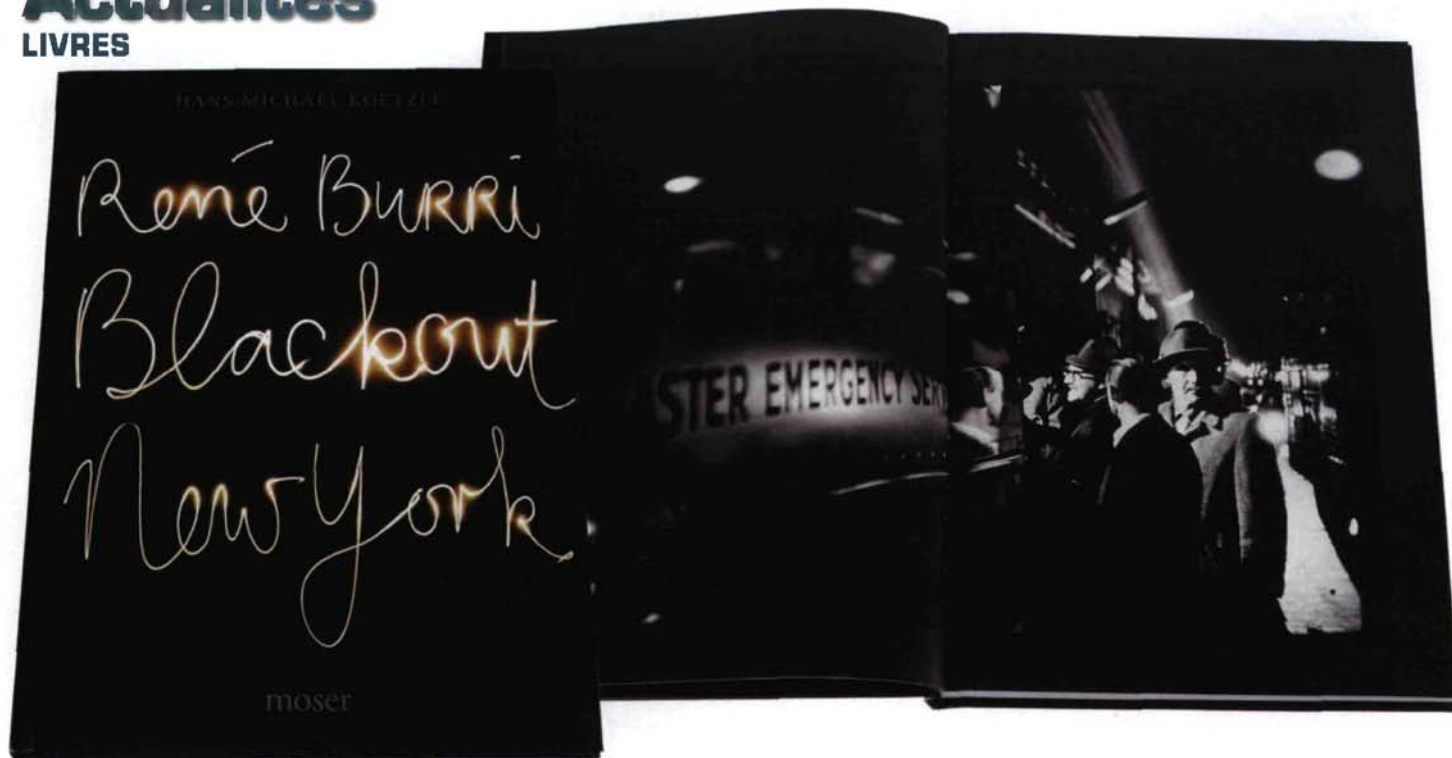 Actualités
LIVRES
HANS-MICHAEL KOETZLE
René Burri
Blackout
New York
moser
STER EMERGENCY SER